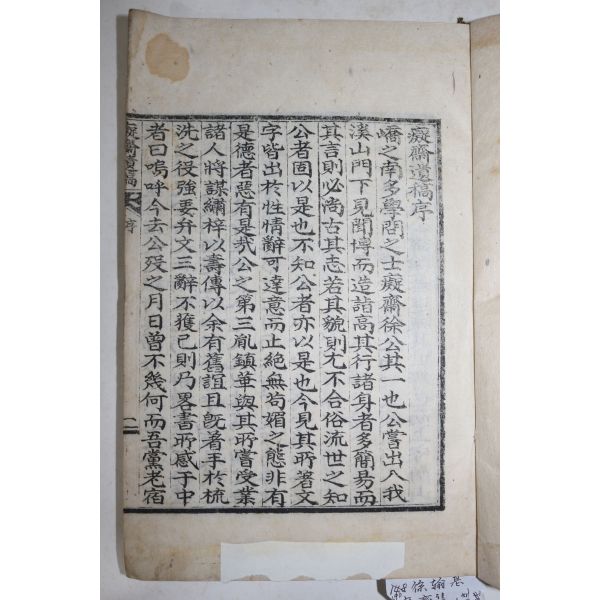 癡齋遺稿序
嶠之南多學問之士癡齋徐公其一也公嘗出入我
溪山門下見聞博而造詣高其行諸身者多簡易而
其言則必尚古其志若其貌則尤不合俗流世之知
公者固以是也不知公者亦以是也今見其所著文
字皆出於性情辭可達意而止絶無苟媚之態非有
是德者惡有是哉公之第三胤鎭華與其所嘗受業
諸人將謀繡梓以壽傳以余有舊誼且旣著手於梳
洗之役強要弁文三辭不獲已則乃畧書所感于中
者曰嗚呼今去公歿之月日曾不幾何而吾黨老宿
癡齋遺稿 序 一
徐翰